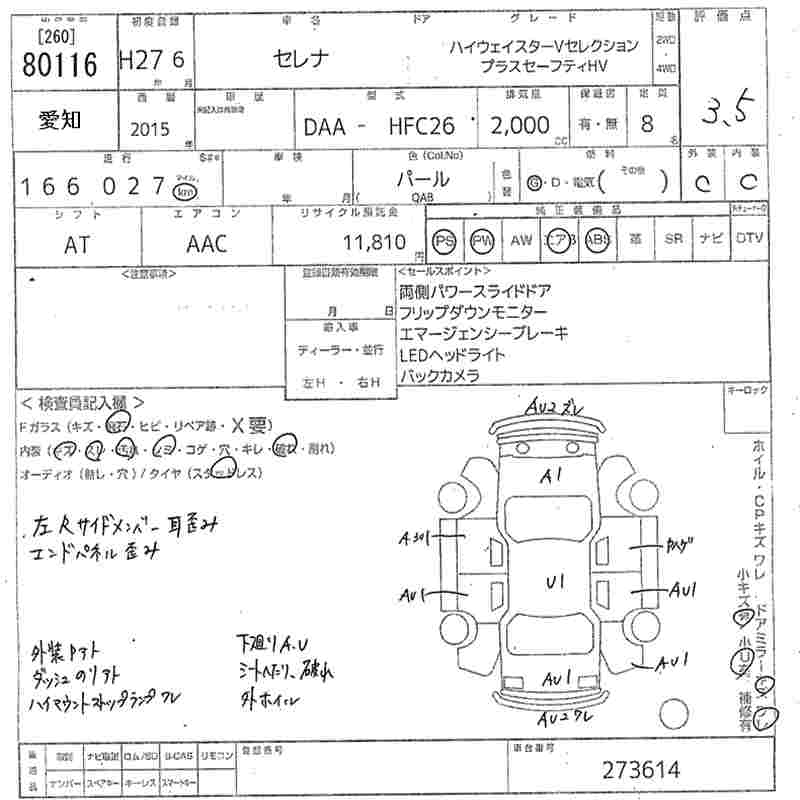 [260]
80116
初度登録
H27 6
年 月
車名
ドア
グレード
セレナ
ハイウェイスターVセレクション
プラスセーフティHV
駆動
2WD
4WD
評価点
3.5
愛知
西暦
2015
年
型式
DAA - HFC26
排気量
2,000
CC
保証書
有・無
定員
8
名
走行
166027
マイル
km
車検
年 月
色(Col.No)
パール
( QAB )
色替
燃料
G・D・電気( その他 )
外装 内装
C C
シフト
AT
エアコン
AAC
リサイクル預託金
11,810
円
純正装備品
PS PW AW エアB ABS 革 SR ナビ DTV
<注意事項>
登録書類有効期限
月 日
輸入車
ディーラー・並行
左H ・ 右H
<セールスポイント>
両側パワースライドドア
フリップダウンモニター
エマージェンシーブレーキ
LEDヘッドライト
バックカメラ
キーロック
<検査員記入欄>
Fガラス(キズ・飛石・ヒビ・リペア跡・X要)
内装(キズ・スレ・汚れ・シミ・コゲ・穴・キレ・破れ・割れ)
オーディオ(無し・穴)/タイヤ(スタッドレス)
左Rサイドメンバー耳歪み
エンドパネル歪み
下廻りA.U
シートへたり、破れ
外ホイル
AU2ズレ
A1
AU1
U1
AU1
AU1
AU1
AU2ワレ
ホイル・CPキズ ワレ
ドアミラー キズ ワレ
小キズ有 小U有 補修有
取説 ナビ取説 ロム/SD B-CAS リモコン
ナンバー スペアキー キーレス スマートキー
登録番号
車台番号
273614